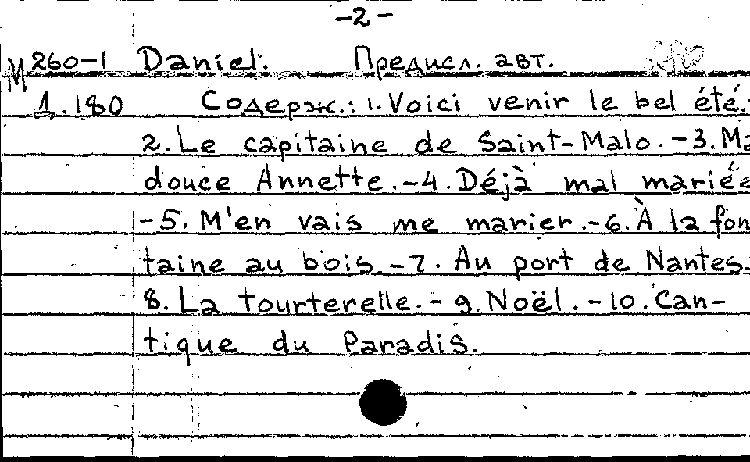 -2-
М 260-1 Daniel. Предисл. авт.
1.180 Содерж.: 1. Voici venir le bel été.
2. Le capitaine de Saint-Malo. -3. Ma
douce Annette. -4. Déjà mal mariée
-5. M'en vais me marier. -6. À la fon
taine au bois. -7. Au port de Nantes.
8. La tourterelle. - 9. Noël. -10. Can-
tique du Paradis.